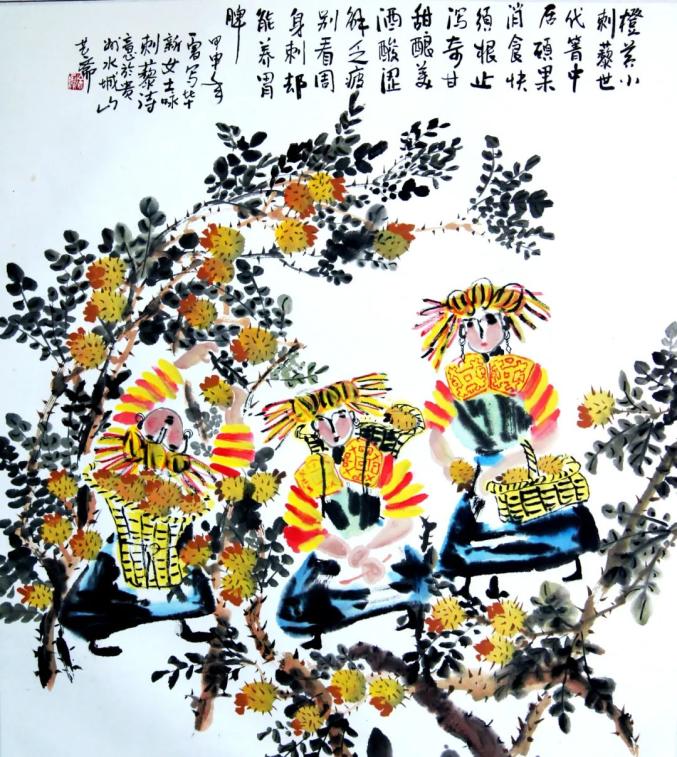 橙黄小
刺藜世
代箐中
居硕果
消食快
须根止
泻奇甘
甜酿美
酒酸涩
解乏疲
别看周
身刺却
能养胃
脾
甲申
写毕
新女士咏
刺藜诗
意於贵
州水城山